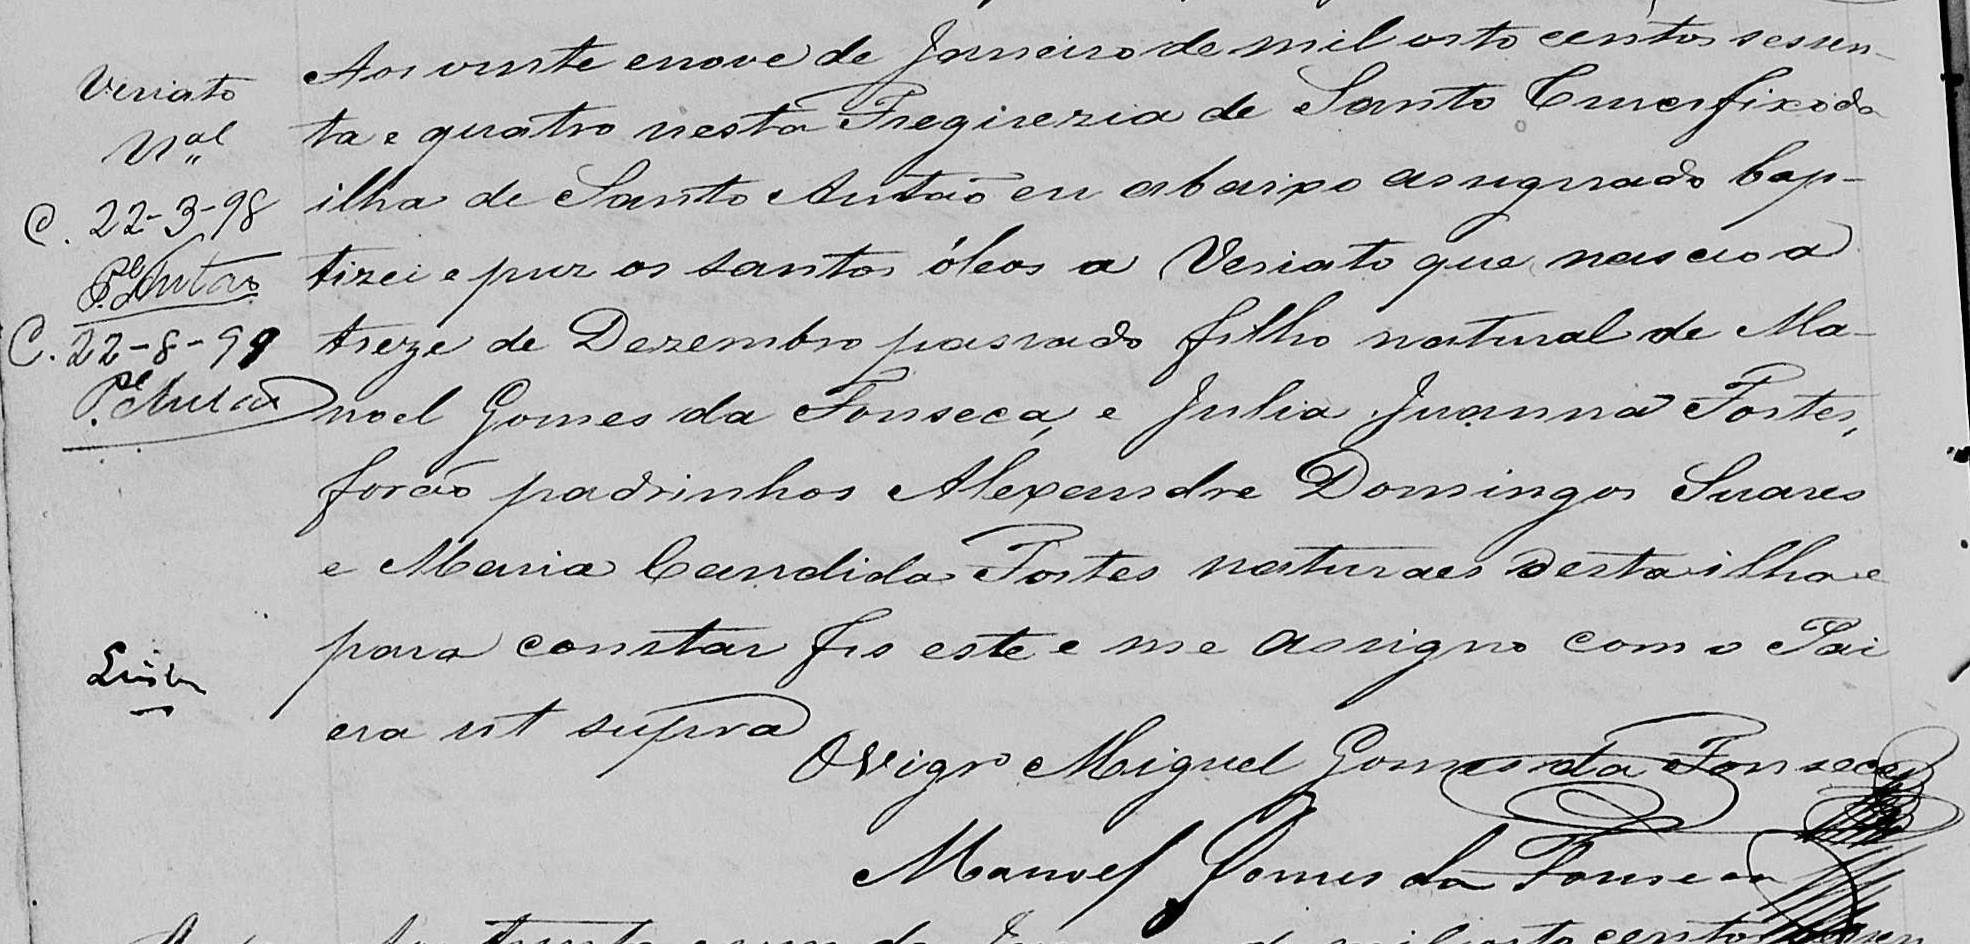 Veriato
Nal
C. 22-3-98
Pe Antão
C. 22-8-99
Pe Antão
Aos vinte e nove de Janeiro de mil oito centos sessen-
ta e quatro nesta Fregirezia de Santo Crucifixo da
ilha de Santo Antão eu abaixo assignado bap-
tizei e puz os santos óleos a Veriato que nasceo a
treze de Dezembro passado filho natural de Ma-
noel Gomes da Fonseca, e Julia Juanna Fortes,
forão padrinhos Alexandre Domingos Suares
e Maria Candida Fortes naturaes desta ilha e
para constar fis este e me assigno com o Pai
era ut supra
O Vigro Miguel Gomes da Fonseca
Manoel Gomes da Fonseca